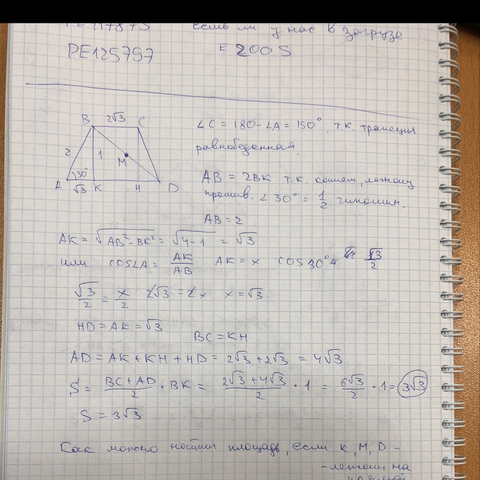 если ли у нас в загрузе
PE125797 E200S
B 2√3 C
2 1 M
A 30° √3 K H D
∠C = 180 - ∠A = 150°, т.к. трапеция
равнобедренная.
AB = 2BK т.к. катет, лежащий
против ∠30° = 1/2 гипотен.
AB = 2
AK = √AB²-BK² = √4-1 = √3
или cos∠A = AK/AB AK = x cos30° √3/2
√3/2 = x/2 2√3 = 2x x = √3
HD = AK = √3
BC = KH
AD = AK + KH + HD = 2√3 + 2√3 = 4√3
S = BC + AD/2 · BK = 2√3 + 4√3/2 · 1 = 6√3/2 · 1 = 3√3
S = 3√3
Как можно найти площадь, если K, M, D -
- лежат на